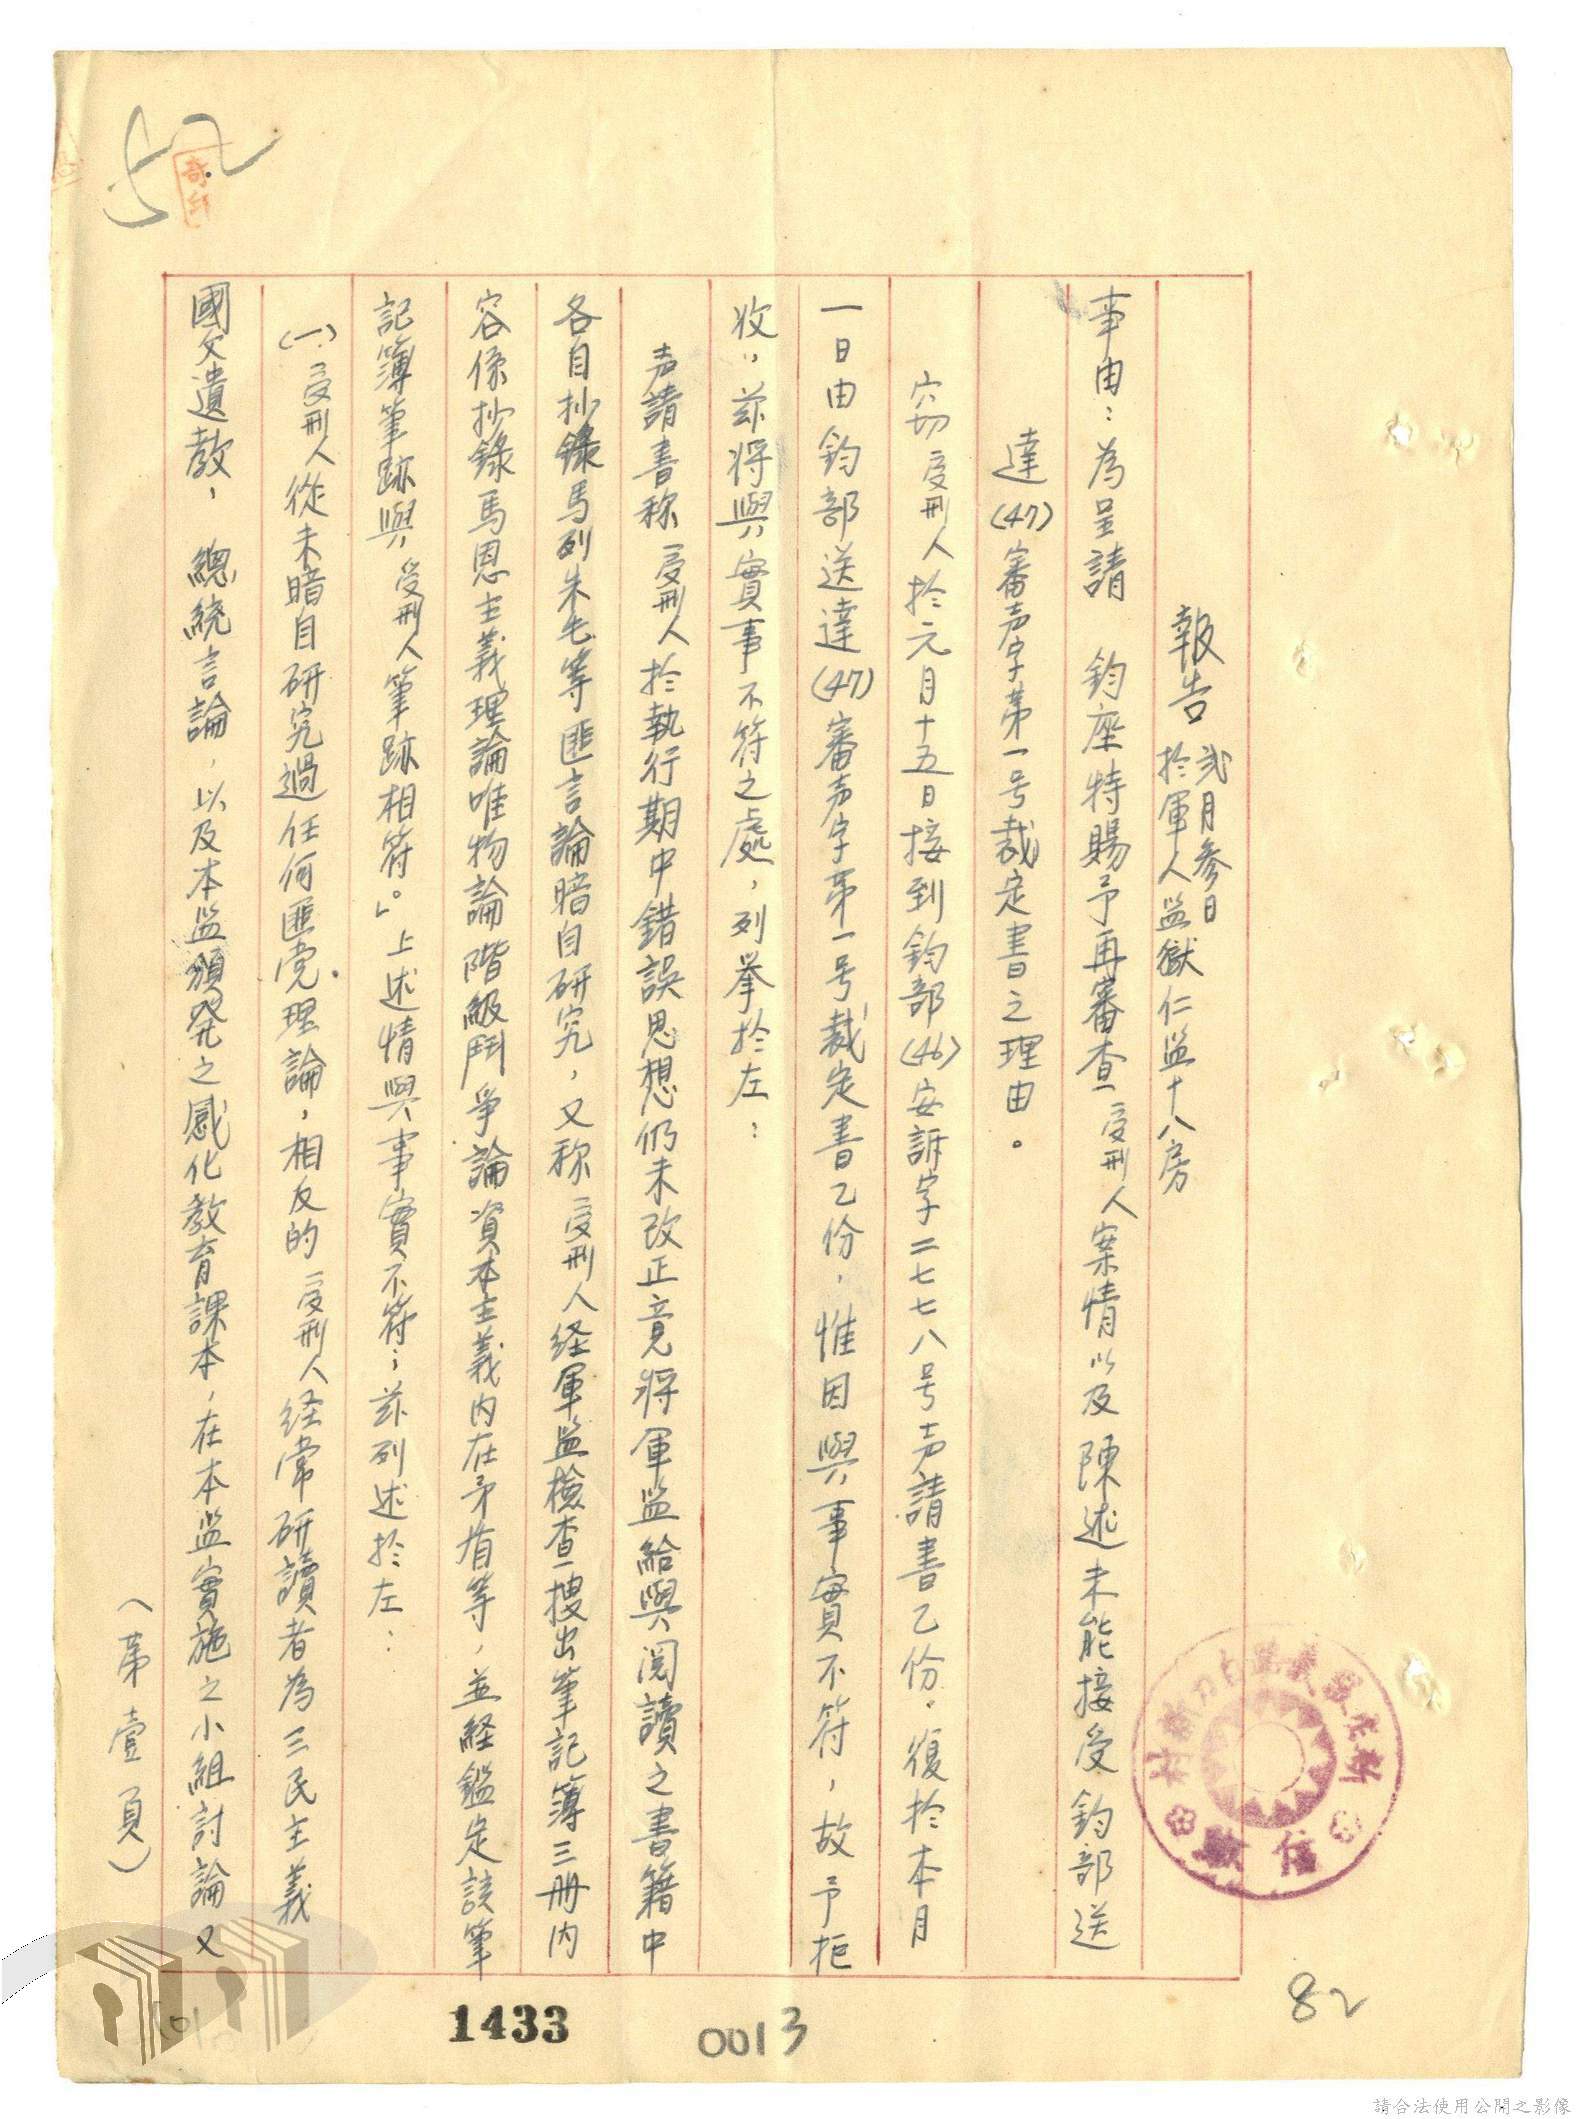 報告 弍月參日
於軍人監獄仁監十八房
事由：為呈請 鈞座特賜予再審查受刑人案情以及陳述未能接受鈞部送
達(47)審声字第一号裁定書之理由。
穷切受刑人於元月十五日接到鈞部(46)安訴字二七七八号声請書乙份，復於本月
一日由鈞部送達(47)審声字第一号裁定書乙份，惟因與事實不符，故予拒
收，茲将與實事不符之處，列举於左：
声請書称受刑人於執行期中錯誤思想仍未改正竟将軍監給與閱讀之書籍中
各自抄錄馬列朱毛等匪言論暗自研究，又称受刑人经軍監檢查搜出筆記簿三冊内
容係抄錄馬恩主義理論唯物論階級鬥爭論資本主義内在矛盾等，並経鑑定該筆
記簿筆跡與受刑人筆跡相符。」上述情與事實不符；茲列述於左：
(一)受刑人從未暗自研究過任何匪党理論，相反的受刑人经常研讀者為三民主義
國父遺教，總統言論，以及本監頒発之感化教育課本，在本監實施之小組討論又
（第壹頁）
52
奇
信
82
1433
0013
請合法使用公開之影像